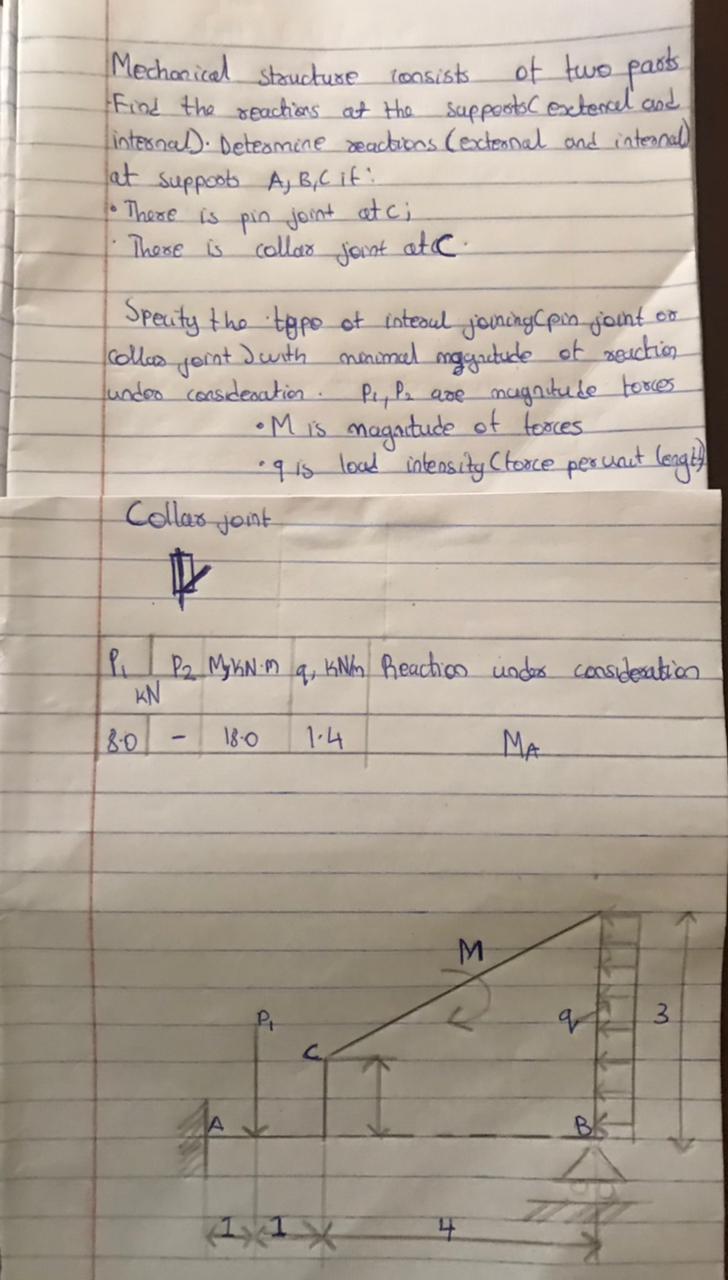 Mechonical structure consists of two parts
Find the reactions at the supports (external and
internal). Determine reactions (external and internal)
at supports A, B, C if:
• There is pin joint at C;
• There is collar joint at C.
Specity the type of interul joining (pin joint or
collar joint) with minimal mggnitude of reaction
under consideration. P1, P2 are magnitude forces
• M is magnitude of forces
• q is load intensity (force per unit length)
Collar joint
P1 P2 M, kN·m q, kN/m Reaction under consideration
kN
8.0 – 18.0 1.4 MA
M
P1 q 3
C
A B
1 1 4